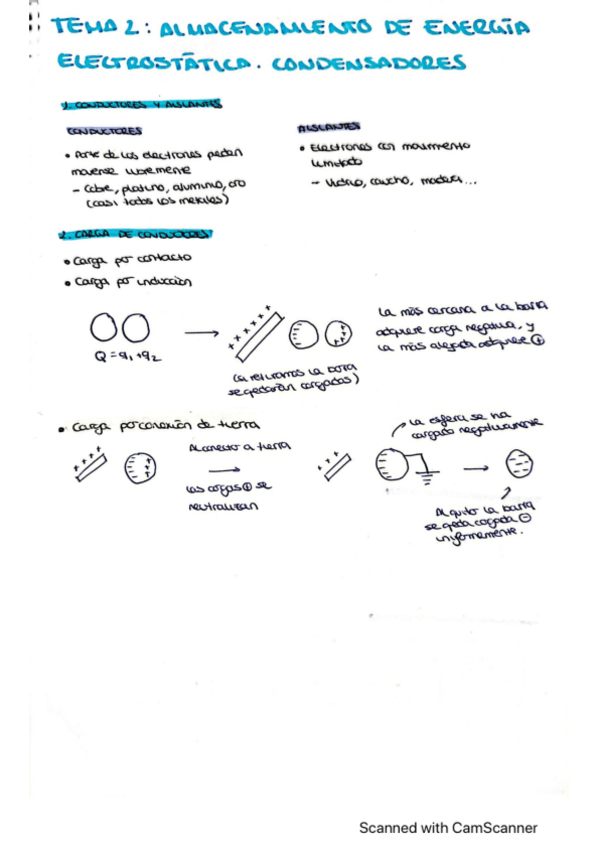 TEMA 2: ALMACENAMIENTO DE ENERGÍA
ELECTROSTÁTICA. CONDENSADORES
1. CONDUCTORES Y AISLANTES
CONDUCTORES
• Parte de los electrones pueden
moverse libremente
- Cobre, platino, aluminio, oro
(casi todos los metales)
AISLANTES
• Electrones con movimiento
limitado
- Vidrio, caucho, madera...
2. CARGA DE CONDUCTORES
• Carga por contacto
• Carga por inducción
Q = q1 + q2
+ + + + + +
(si retiramos la barra
se quedarán cargadas)
La más cercana a la barra
adquiere carga negativa, y
la más alejada adquiere ⊕
• Carga por conexión de tierra
+ + + +
Al conecto a tierra
las cargas ⊕ se
neutralizan
+ + +
La esfera se ha
cargado negativamente
Al quito la barra
se queda cargada ⊖
uniformemente.
Scanned with CamScanner